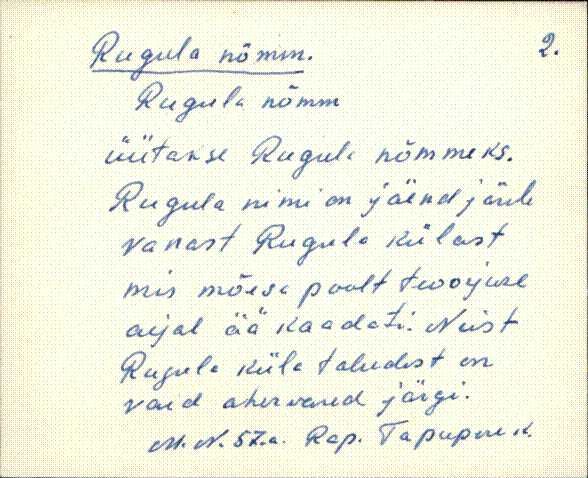 Rugula nõmm. 2.
Rugula nõmm
üütakse Rugula nõmmeks.
Rugula nimi on jäend järle
vanast Rugula külast
mis mõesa poolt
aijal ää kaadati. Neist
Rugula küla taludest on
vaid ahervared järgi.
M. N. 57.a. Rap. Tapupere k.